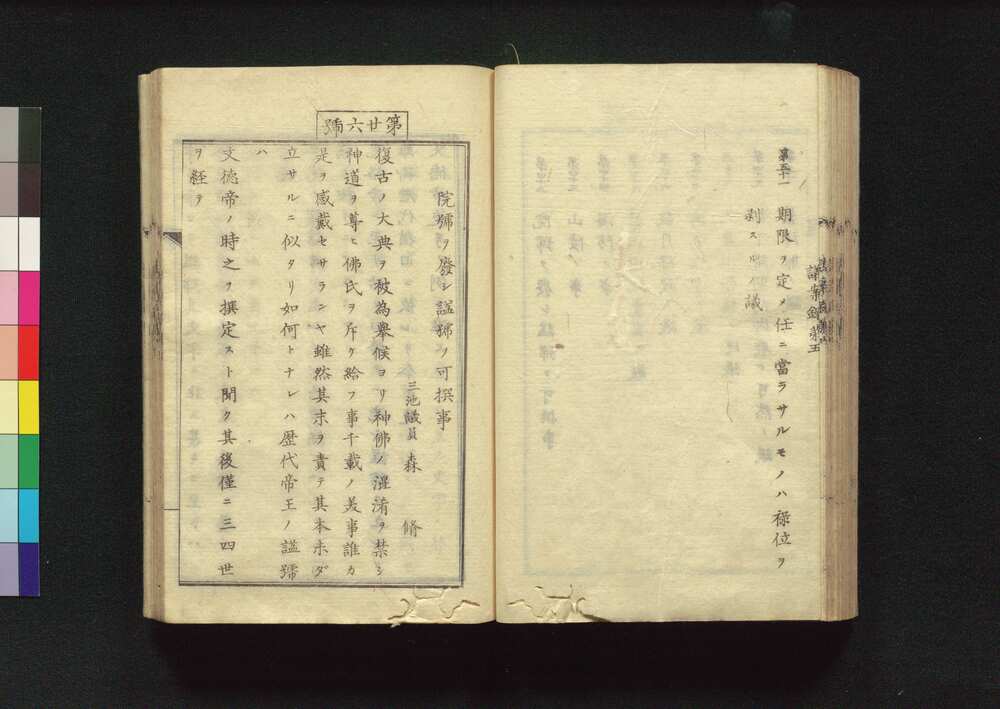 期限ヲ定メ任ニ當ラサルモノハ禄位ヲ
剥スルノ議
議案録第五
第廿六號
院號ヲ廢シ謚號ノ可撰事
三池議員 森 脩
復古ノ大典ヲ被為舉候ヨリ神佛ノ混淆ヲ禁シ
神道ヲ尊ヒ佛氏ヲ斥ケ給フ事千載ノ美事誰カ
是ヲ感戴セサランヤ雖然其末ヲ責テ其本未ダ
立サルニ似タリ如何トナレハ歴代帝王ノ謚號
ハ
文徳帝ノ時之ヲ撰定スト聞ク其後僅ニ三四世
ヲ経テ